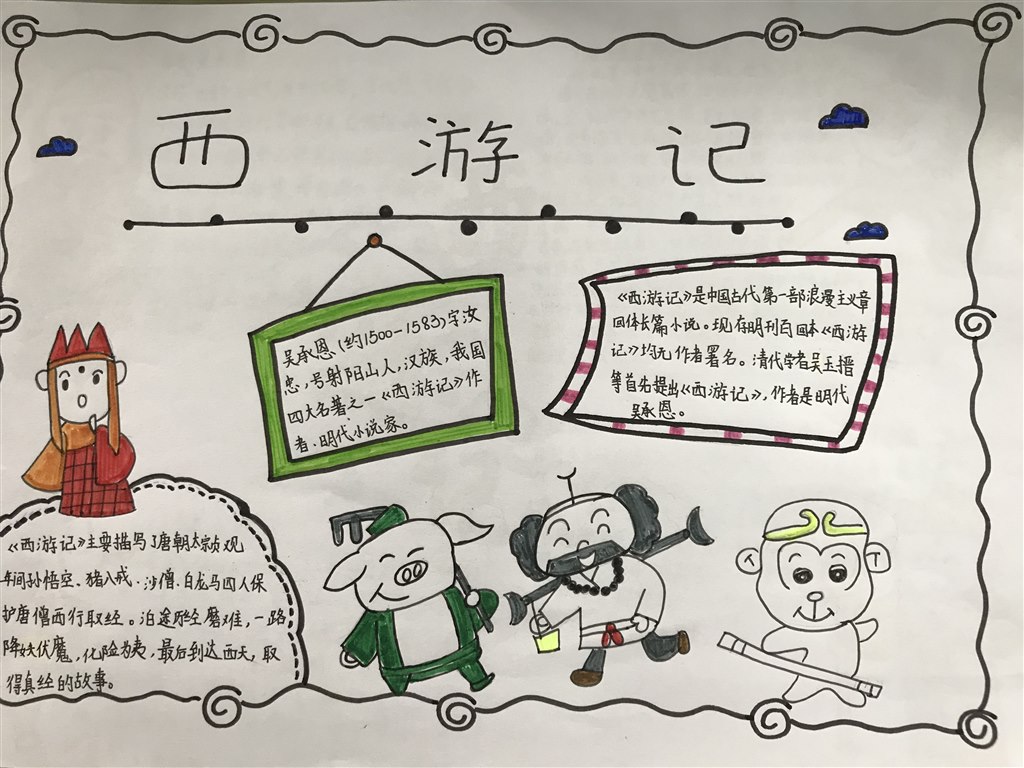 西游记
吴承恩(约1500-1583)字汝
忠,号射阳山人,汉族,我国
四大名著之一《西游记》作
者、明代小说家。
《西游记》是中国古代第一部浪漫主义章
回体长篇小说。现存明刊百回本《西游
记》均无作者署名。清代学者吴玉搢
等首先提出《西游记》,作者是明代
吴承恩。
《西游记》主要描写了唐朝太宗贞观
年间孙悟空、猪八戒、沙僧、白龙马四人保
护唐僧西行取经。沿途历经磨难,一路
降妖伏魔,化险为夷,最后到达西天,取
得真经的故事。